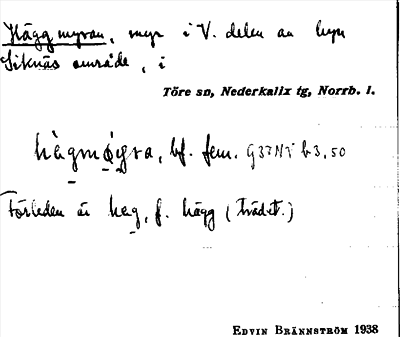 Häggmyran, myr i V. delen av byn
Siknäs område, i
Töre sn, Nederkalix tg, Norrb. l.
hägmøyra, bf. fem.
Förleden är heg, f. hägg (trädet.)
EDVIN BRÄNNSTRÖM 1938